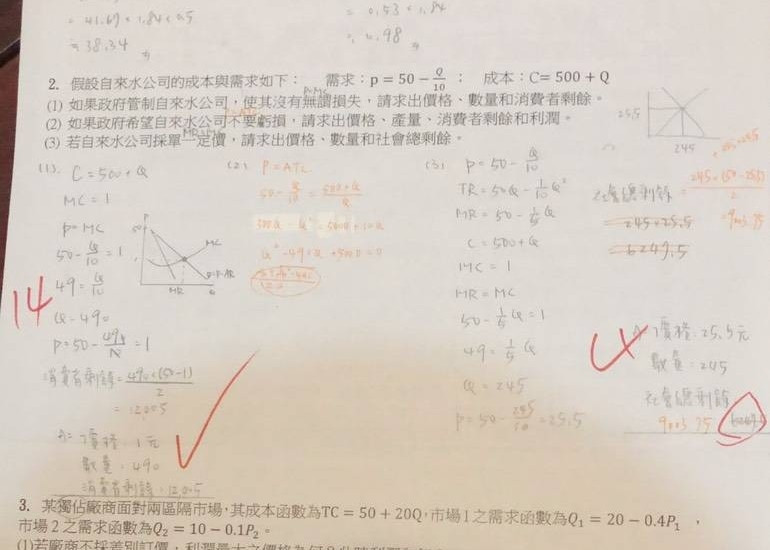 = 41.69 × 1.84 × 0.5
= 38.34
= 0.53 × 1.84
= 0.98
2. 假設自來水公司的成本與需求如下： 需求：p = 50 − Q/10 ； 成本：C= 500 + Q
(1) 如果政府管制自來水公司，使其沒有無謂損失，請求出價格、數量和消費者剩餘。
(2) 如果政府希望自來水公司不要虧損，請求出價格、產量、消費者剩餘和利潤。
(3) 若自來水公司採單一定價，請求出價格、數量和社會總剩餘。
(1).
C = 500 + Q
MC = 1
P = MC
50 − Q/10 = 1
49 = Q/10
Q = 490
P = 50 − 490/10 = 1
消費者剩餘 = 490×(50−1)/2
= 12005
A: 價格：1元
數量：490
消費者剩餘：12005
P
50
MC
D=P=AR
MR
Q
14
(2)
P = ATC
50 − Q/10 = 500+Q/Q
500Q − Q² = 5000 + 10Q
Q² − 490Q + 5000 = 0
(3)
P = 50 − Q/10
TR = 50Q − 1/10 Q²
MR = 50 − 1/5 Q
C = 500 + Q
MC = 1
MR = MC
50 − 1/5 Q = 1
49 = 1/5 Q
Q = 245
P = 50 − 245/10 = 25.5
25.5
245
社會總剩餘
245×25.5
= 6247.5
= 9003.75
A: 價格：25.5元
數量：245
社會總剩餘
9003.75
3. 某獨佔廠商面對兩區隔市場，其成本函數為TC = 50 + 20Q，市場1之需求函數為Q₁ = 20 − 0.4P₁ ，
市場2之需求函數為Q₂ = 10 − 0.1P₂。
(1)若廠商不採差別訂價，利潤最大之價格為何？